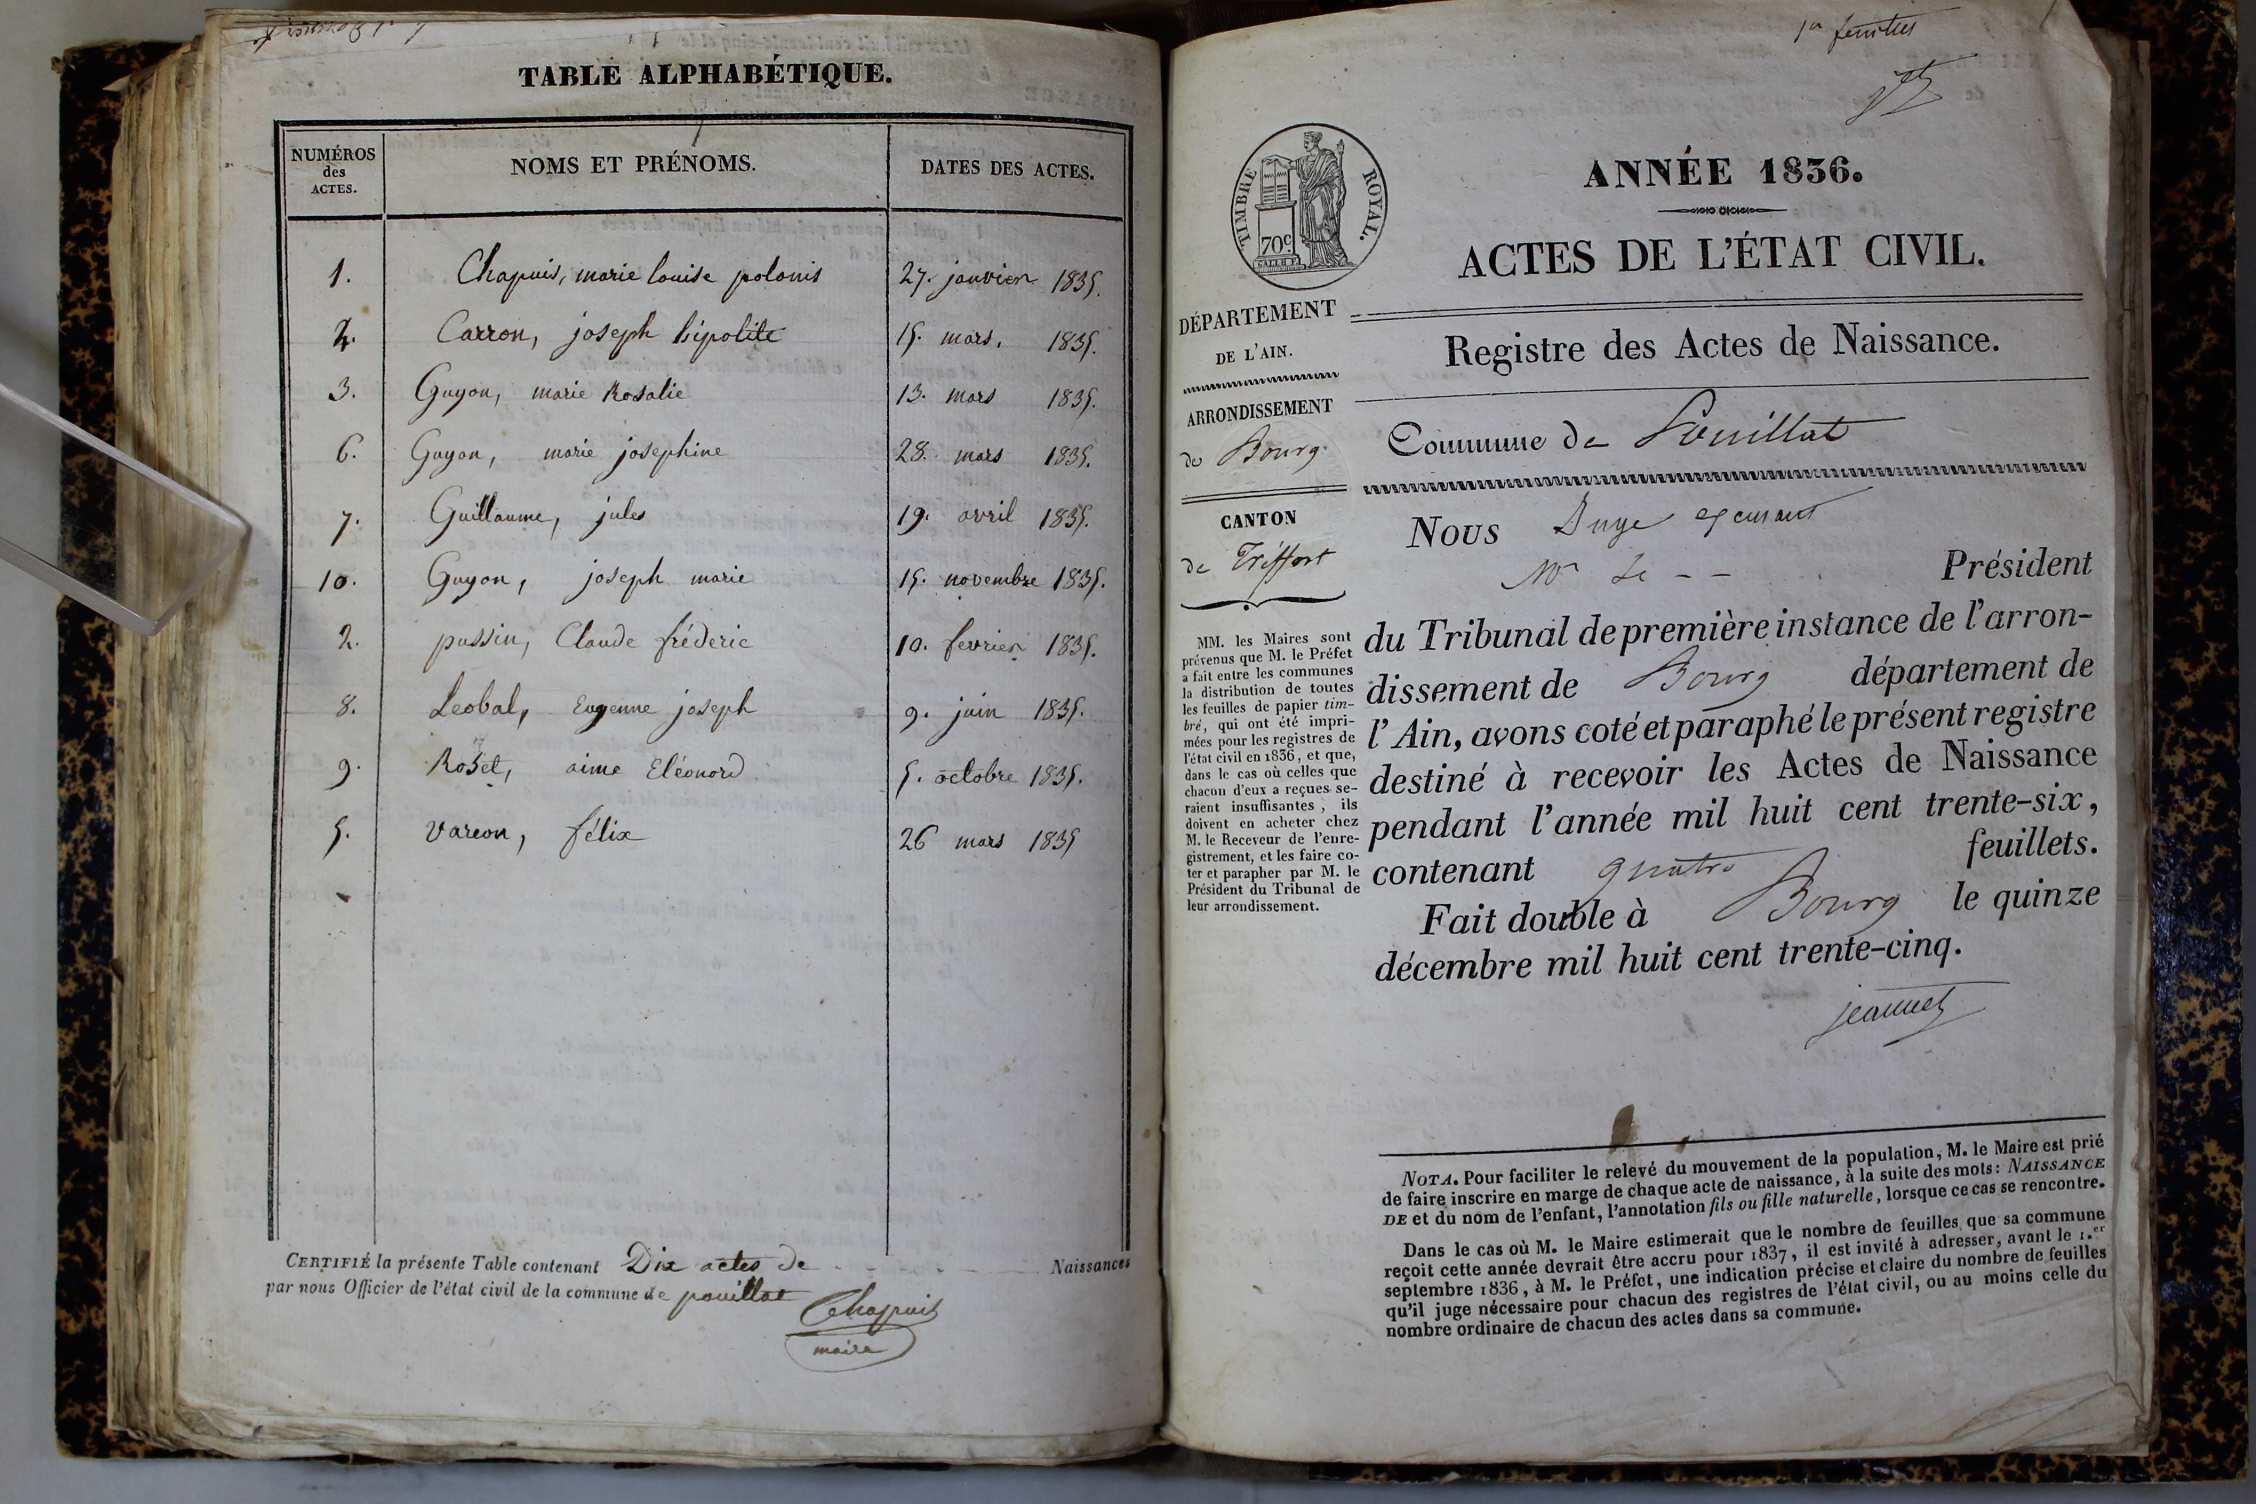 TABLE ALPHABÉTIQUE.
NUMÉROS des ACTES. NOMS ET PRÉNOMS. DATES DES ACTES.
1. Chapuis, marie louise polonis 27. janvier 1835.
4. Carron, joseph hipolite 15. mars. 1835.
3. Guyon, marie Rosalie 13. mars 1835.
6. Guyon, marie josephine 28. mars 1835.
7. Guillaume, jules 19. avril 1835.
10. Guyon, joseph marie 15. novembre 1835.
2. pussin, Claude fréderic 10. fevrier 1835.
8. Leobal, Eugenne joseph 9. juin 1835.
9. Roset, aime Eléonord 5. octobre 1835.
5. vareon, félix 26 mars 1835
CERTIFIÉ la présente Table contenant Dix actes de Naissances
par nous Officier de l'état civil de la commune de pouillat
Chapuis
maire
1er feuillet
TIMBRE ROYAL.
70c
ANNÉE 1836.
ACTES DE L'ÉTAT CIVIL.
DÉPARTEMENT
DE L'AIN.
ARRONDISSEMENT
de Bourg
CANTON
de Tréffort
MM. les Maires sont
prévenus que M. le Préfet
a fait entre les communes
la distribution de toutes
les feuilles de papier tim-
bré, qui ont été impri-
mées pour les registres de
l'état civil en 1836, et que,
dans le cas où celles que
chacun d'eux a reçues se-
raient insuffisantes, ils
doivent en acheter chez
M. le Receveur de l'enre-
gistrement, et les faire co-
ter et parapher par M. le
Président du Tribunal de
leur arrondissement.
Registre des Actes de Naissance.
Commune de Pouillat
Nous Juge
Mr Le -- Président
du Tribunal de première instance de l'arron-
dissement de Bourg département de
l'Ain, avons coté et paraphé le présent registre
destiné à recevoir les Actes de Naissance
pendant l'année mil huit cent trente-six,
contenant quatre feuillets.
Fait double à Bourg le quinze
décembre mil huit cent trente-cinq.
jeannet
NOTA. Pour faciliter le relevé du mouvement de la population, M. le Maire est prié
de faire inscrire en marge de chaque acte de naissance, à la suite des mots: NAISSANCE
DE et du nom de l'enfant, l'annotation fils ou fille naturelle, lorsque ce cas se rencontre.
Dans le cas où M. le Maire estimerait que le nombre de feuilles que sa commune
reçoit cette année devrait être accru pour 1837, il est invité à adresser, avant le 1.er
septembre 1836, à M. le Préfet, une indication précise et claire du nombre de feuilles
qu'il juge nécessaire pour chacun des registres de l'état civil, ou au moins celle du
nombre ordinaire de chacun des actes dans sa commune.